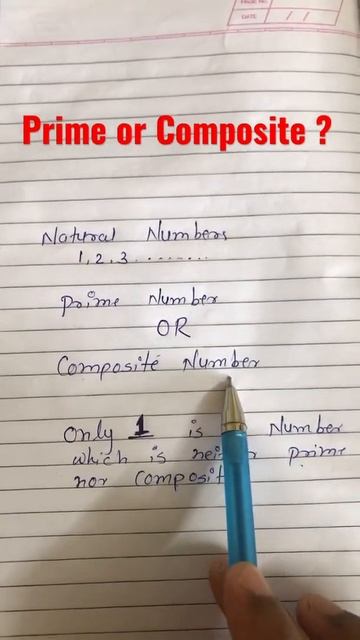 PAGE NO.
DATE / /
Prime or Composite ?
Natural Numbers
1, 2, 3 ........
Prime Number
OR
Composite Number
Only 1 is Number
which is prime
nor